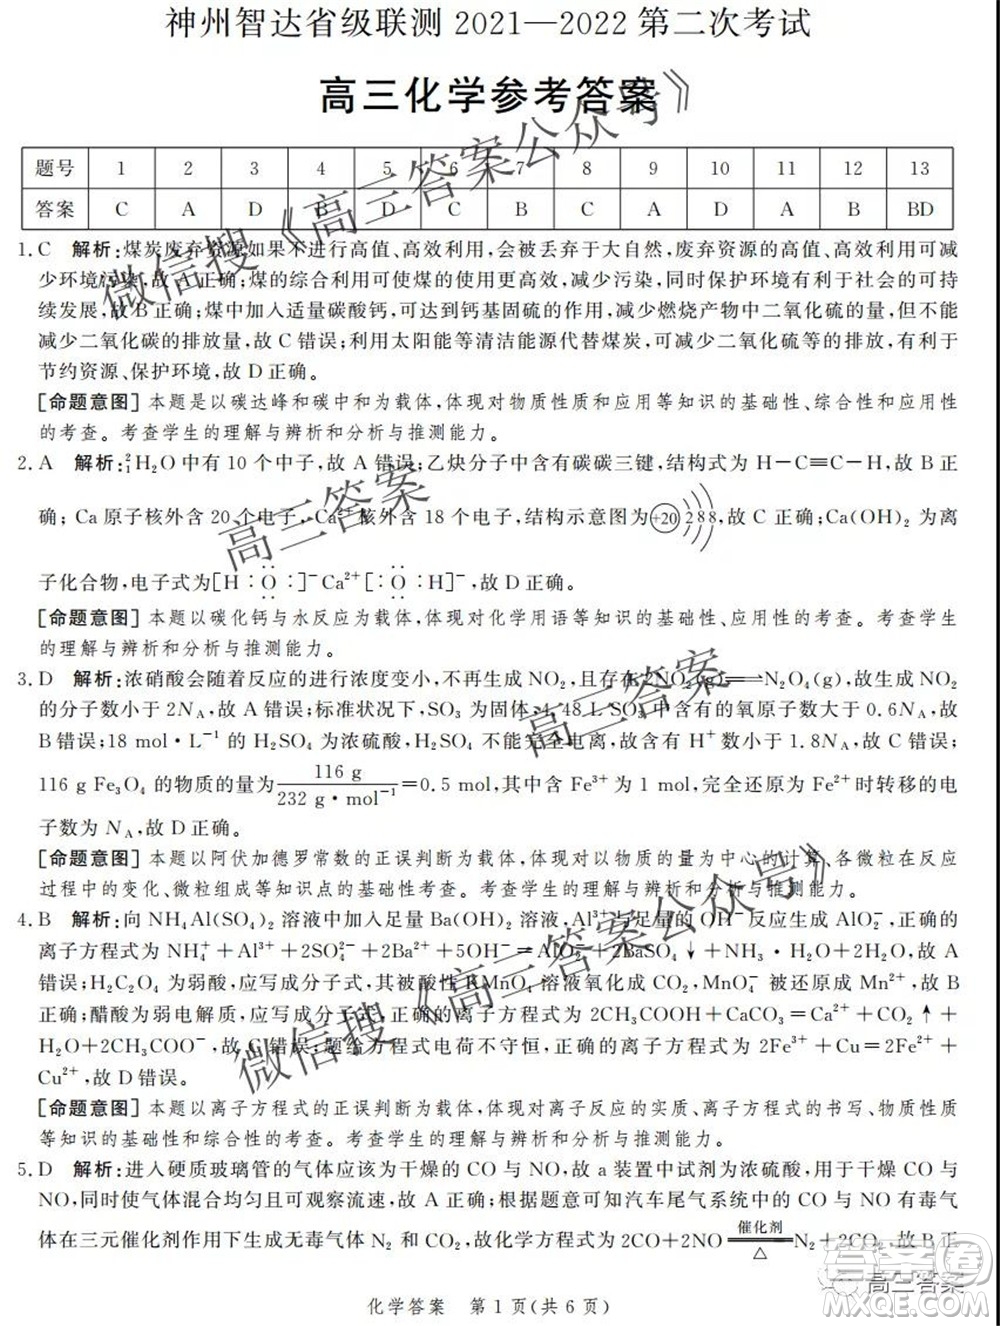 神州智达省级联测 2021—2022 第二次考试
高三化学参考答案
题号 1 2 3 4 5 6 7 8 9 10 11 12 13
答案 C A D B D C B C A D A B BD
1.C 解析:煤炭废弃资源如果不进行高值、高效利用,会被丢弃于大自然,废弃资源的高值、高效利用可减
少环境污染,故 A 正确;煤的综合利用可使煤的使用更高效,减少污染,同时保护环境与社会的可持
续发展,故 B 正确;煤中加入适量碳酸钙,可以钙基固硫的作用,减少燃烧产物中二氧化硫的量,但不能
减少二氧化碳的排放量,故 C 错误;利用太阳能等清洁能源代替煤炭,可减少二氧化硫等的排放,有利于
节约资源、保护环境,故 D 正确。
[命题意图] 本题是以碳达峰和碳中和为载体,体现对物质性质和应用等知识的基础性、综合性和应用性
的考查。考查学生的理解与辨析和分析与推测能力。
2.A 解析:²₁H₂O 中有 10 个中子,故 A 错误;乙炔分子中含有碳碳三键,结构式为 H—C≡C—H,故 B 正
确; Ca 原子核外含 20 个电子, Ca²⁺ 核外含 18 个电子,结构示意图为 +20 2 8 8 ,故 C 正确;Ca(OH)₂ 为离
子化合物,电子式为[H:O:]⁻Ca²⁺[:O:H]⁻,故 D 正确。
[命题意图] 本题以碳化钙与水反应为载体,体现对化学用语等知识的基础性、应用性的考查。考查学生
的理解与辨析和分析与推测能力。
3.D 解析:浓硝酸会随着反应的进行浓度变小,不再生成 NO₂,且存在 2NO₂(g)⇌N₂O₄(g),故生成 NO₂
的分子数小于 2N_A,故 A 错误;标准状况下,SO₃ 为固体,4.48 L SO₃ 中含有的氧原子数大于 0.6N_A,故
B 错误;18 mol·L⁻¹ 的 H₂SO₄ 为浓硫酸,H₂SO₄ 不能完全电离,故含有 H⁺ 数小于 1.8N_A,故 C 错误;
116 g Fe₃O₄ 的物质的量为 116 g/232 g·mol⁻¹=0.5 mol,其中 Fe³⁺ 为 1 mol,Fe³⁺ 还原为 Fe²⁺ 时转移的电
子数为 N_A,故 D 正确。
[命题意图] 本题以阿伏加德罗常数的正误判断为载体,体现对以物质的量为中心的计算、各微粒在反应
过程中的变化、微粒组成等知识点的基础性考查。考查学生的理解与辨析和分析与推测能力。
4.B 解析:向 NH₄Al(SO₄)₂ 溶液中加入足量 Ba(OH)₂ 溶液,Al³⁺ 与足量的 OH⁻ 反应生成 AlO₂⁻,正确的
离子方程式为 NH₄⁺+Al³⁺+2SO₄²⁻+2Ba²⁺+5OH⁻=AlO₂⁻+2BaSO₄↓+NH₃·H₂O+2H₂O,故 A
错误;H₂C₂O₄ 为弱酸,应写成分子式,其被酸性 KMnO₄ 溶液氧化成 CO₂,MnO₄⁻ 被还原成 Mn²⁺,故 B 正
确;醋酸为弱电解质,应写成分子式,正确的离子方程式为 2CH₃COOH+CaCO₃=Ca²⁺+CO₂↑+
H₂O+2CH₃COO⁻,故 C 错误;题给方程式电荷不守恒,正确的离子方程式为 2Fe³⁺+Cu=2Fe²⁺+
Cu²⁺,故 D 错误。
[命题意图] 本题以离子方程式的正误判断为载体,体现对离子反应的实质、离子方程式的书写、物质性质
等知识的基础性和综合性的考查。考查学生的理解和辨析和分析与推测能力。
5.D 解析:进入硬质玻璃管的气体应该为干燥的 CO 与 NO,故 a 装置中试剂为浓硫酸,可干燥 CO 与
NO,同时使气体混合均匀且可观察流速,故 A 正确;根据题意可知汽车尾气系统中的 CO 与 NO 有毒气
体在三元催化剂作用下生成无毒气体 N₂ 和 CO₂,故化学方程式为 2CO+2NO 催化剂/△ N₂+2CO₂,故 B 正
化学答案 第 1 页(共 6 页)
微信搜《高三答案公众号》
高三答案
高三答案
微信搜《高三答案公众号》
高三答案
答案圈
MXQE.COM